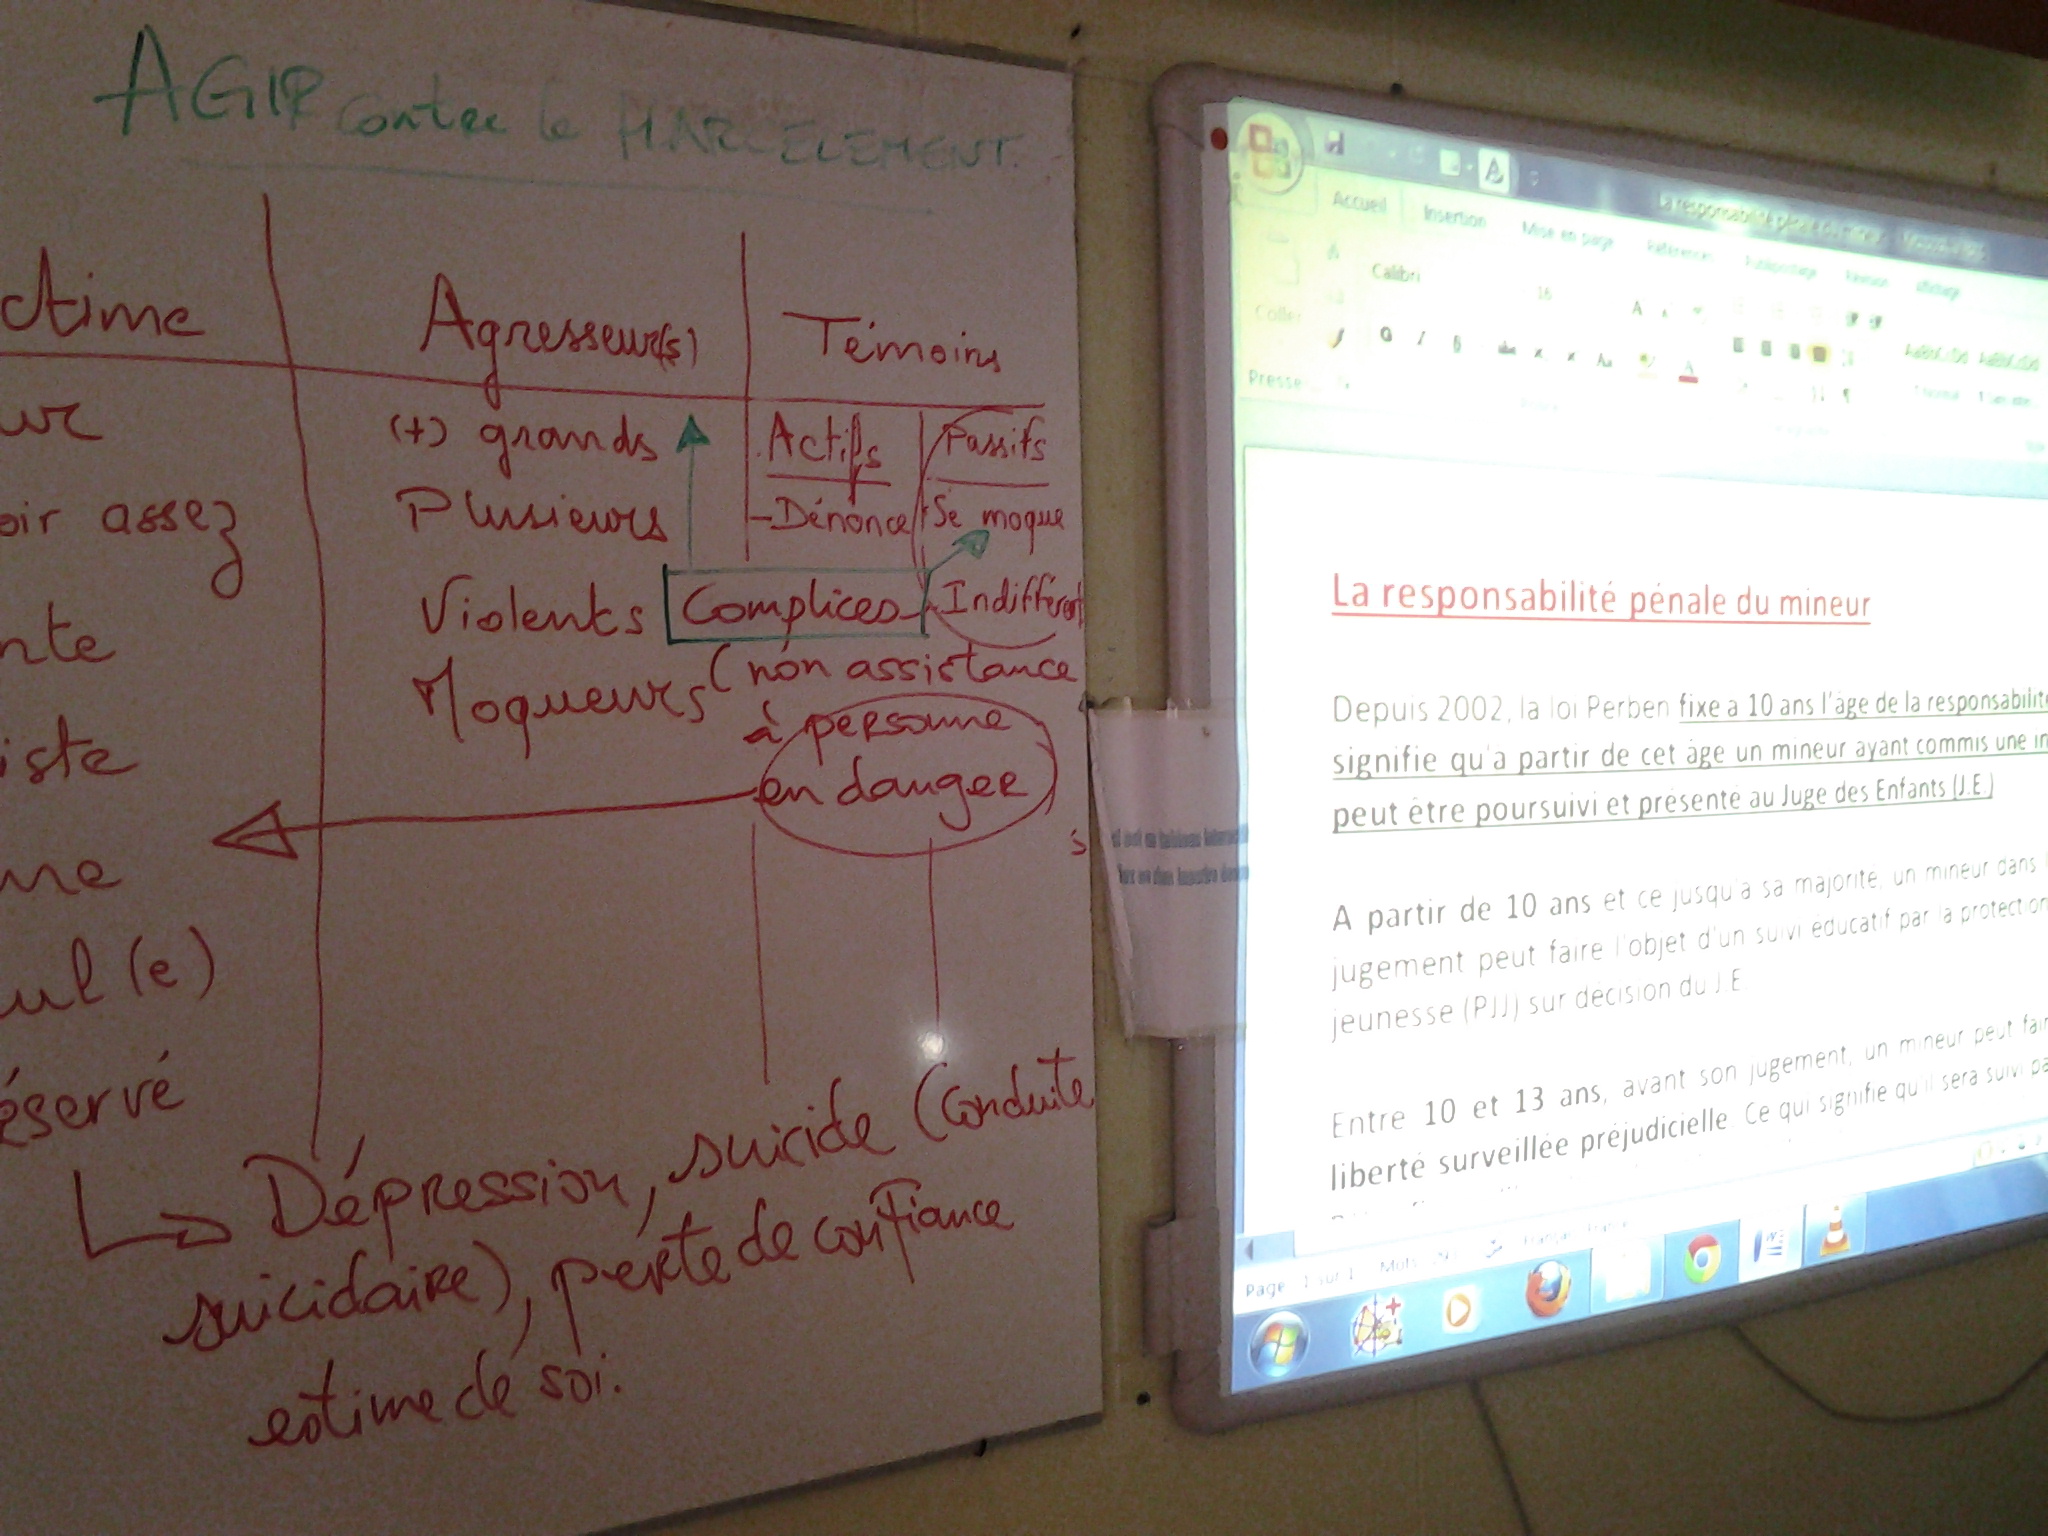 AGIR contre le HARCELEMENT.
ctime
Agresseur(s)
Témoins
ur
(+) grands
Actifs
Passifs
oir assez
Plusieurs
-Dénonce
Se moque
nte
Violents
Complices
Indifférent
iste
Moqueurs
(non assistance
à personne
en danger
me
ul(e)
éservé
Dépression, suicide (conduite
suicidaire), perte de confiance
estime de soi.
La responsabilité pénale du mineur
Accueil
Insertion
Mise en page
Références
Publipostage
Révision
Affichage
Coller
Calibri
16
G I S
Presse
La responsabilité pénale du mineur
Depuis 2002, la loi Perben fixe a 10 ans l'âge de la responsabilité
signifie qu'a partir de cet âge un mineur ayant commis une in
peut être poursuivi et présenté au Juge des Enfants (J.E.)
A partir de 10 ans et ce jusqu'a sa majorité, un mineur dans
jugement peut faire l'objet d'un suivi éducatif par la protection
jeunesse (PJJ) sur décision du J.E
Entre 10 et 13 ans, avant son jugement, un mineur peut fair
liberté surveillée préjudicielle. Ce qui signifie qu'il sera suivi pa
Page 1 sur 1
Mots